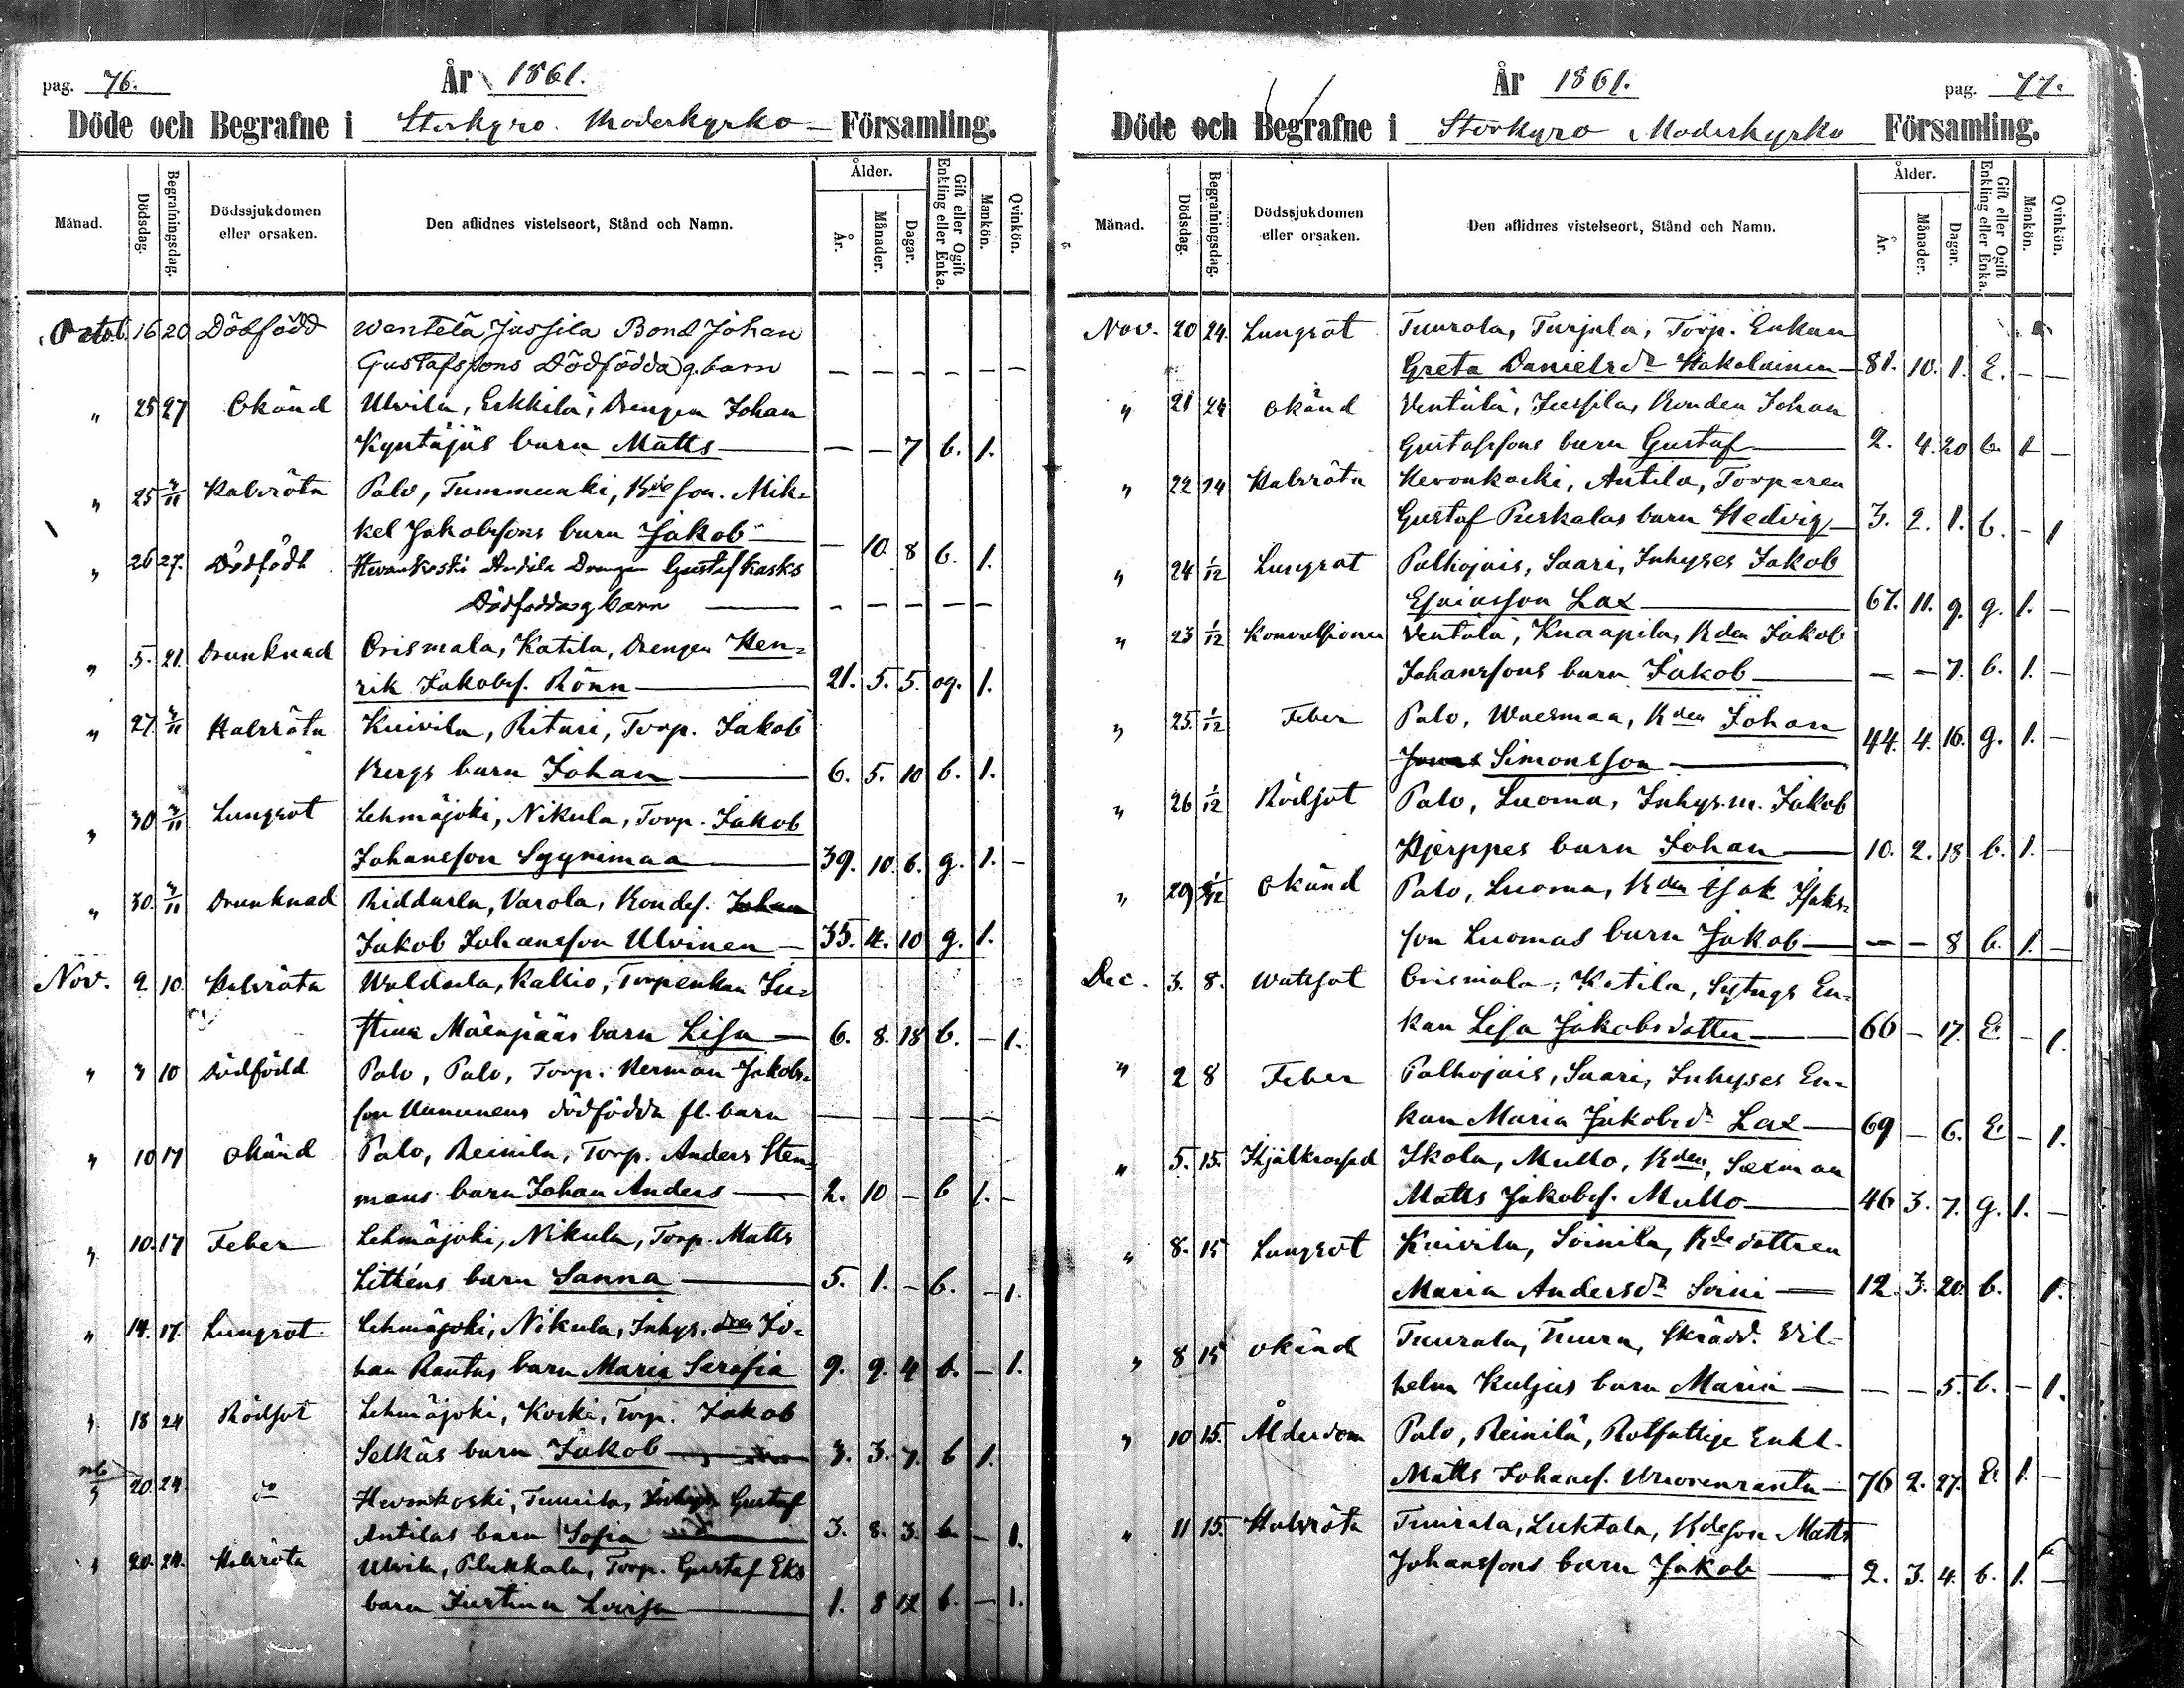 pag. 76.
År 1861.
Döde och Begrafne i Storkyro Moderkyrko Församling.
Månad. Dödsdag. Begrafningsdag. Dödssjukdomen eller orsaken. Den aflidnes vistelseort, Stånd och Namn. Ålder. År. Månader. Dagar. Gift eller Ogift Enkling eller Enka. Mankön. Qvinkön.
Octob. 16 20 Dödfödd Wentelä Jussila Bond Johan
Gustafssons Dödfödda g. barn — — — — — —
" 25 27 Okänd Ulvila, Erkkilä, Drengen Johan
Kyntäjäs barn Matts — — 7 b. 1.
" 25 3/11 Halsröta Palo, Tummunki, Bde son. Mik-
kel Jakobssons barn Jakob — 10 8 b. 1.
" 26 27. Dödfödt Hevonkoski Andila Drengen Gustaf Kasks
Dödfödda g barn — — — — —
" 5. 21. Drunknad Orismala, Katila, Drengen Hen-
rik Jakobs. Rönn 21. 5. 5. og. 1.
" 27. 3/11 Halsröta Kuivila, Ritari, Torp. Jakob
Bergs barn Johan 6. 5. 10 b. 1.
" 30 3/11 Lungsot Lehmäjoki, Nikula, Torp. Jakob
Johansson Syynimaa 39. 10. 6. g. 1. —
" 30. 3/11 Drunknad Riddarla, Varola, Bondes. Johan
Jakob Johansson Ulvinen 35. 4. 10 g. 1.
Nov. 2. 10. Halsröta Waldala, Kallio, Torpenkan Ju-
stina Mäenpääs barn Lisa 6. 8. 18 b. — 1.
" 3 10 Dödfödd Palo, Palo, Torp. Herman Jakobs-
son dödfödda fl. barn — — — — —
" 10 17 Okänd Palo, Reinila, Torp. Anders Sten-
mans barn Johan Anders 2. 10 — b 1. —
" 10. 17 Feber Lehmäjoki, Nikula, Torp. Matts
Litténs barn Sanna 5. 1. — b. — 1.
" 14. 17. Lungsot Lehmäjoki, Nikula, Inhys. dren Jo-
han Rantas barn Maria Serafia 9. 9. 4 b. — 1.
" 18 24 Rödsot Lehmäjoki, Koski, Torp. Jakob
Selkäs barn Jakob 3. 3. 7. b 1.
" 20. 24. do Hevonkoski, Tuurila, Inhys Gustaf
Antilas barn Sofia 3. 8. 3. b. — 1.
" 20. 24. Halsröta Ulvila, Plukkala, Torp. Gustaf Eks
barn Justina Lovisa 1. 8 12 b. — 1.
År 1861.
pag. 77.
Döde och Begrafne i Storkyro Moderkyrko Församling.
Månad. Dödsdag. Begrafningsdag. Dödssjukdomen eller orsaken. Den aflidnes vistelseort, Stånd och Namn. Ålder. År. Månader. Dagar. Gift eller Ogift Enkling eller Enka. Mankön. Qvinkön.
Nov. 20 24. Lungsot Tuurala, Turjula, Torp. Enkan
Greta Danielsdr Hakolainen 81. 10. 1. E. — —
" 21 24 Okänd Ventälä, Jussila, Bonden Johan
Gustafssons barn Gustaf 2. 4. 20 b. 1 —
" 22 24 Halsröta Hevonkoski, Antila, Torparen
Gustaf Puskalas barn Hedvig 3. 2. 1. b. — 1
" 24 1/12 Lungsot Palhojais, Saari, Inhyses Jakob
Esaiasson Lax 67. 11. 9. g. 1. —
" 23 1/12 Konvulsioner Ventälä, Knaapila, Bden Jakob
Johanssons barn Jakob — — 7. b. 1. —
" 25. 1/12 Feber Palo, Waismaa, Bden Johan
Simonsson 44. 4. 16. g. 1. —
" 26 1/12 Rödsot Palo, Luoma, Inhys.m. Jakob
Kjerppes barn Johan 10. 2. 18 b. 1. —
" 29 1/12 Okänd Palo, Luoma, Bden Isak Isaks-
son Luomas barn Jakob — — 8 b. 1. —
Dec. 3. 8. Watusot Orismala, Katila, Sytngs En-
kan Lisa Jakobsdotter 66 — 17. E — 1.
" 2 8 Feber Palhojais, Saari, Inhyses En-
kan Maria Jakobsdr Lax 69 — 6. E — 1.
" 5. 15. Ihjälkrossad Ikola, Mullo, Bden, Sexman
Matts Jakobs. Mullo 46 3. 7. g. 1. —
" 8. 15 Lungsot Kuivila, Soinila, Bde dottren
Maria Andersdr Soini 12. 3. 20. b. 1.
" 8 15 Okänd Tuurala, Tuura, Skrädd. Vil-
helm Kuljus barn Maria — — 5. b. — 1.
" 10 15. Ålderdom Palo, Reinilä, Rotfattige Enkl.
Matts Johans. Wuorenranta 76 2. 27. E 1. —
" 11 15. Halsröta Tuurala, Luhtala, Bde son Matts
Johanssons barn Jakob 2. 3. 4. b. 1. —